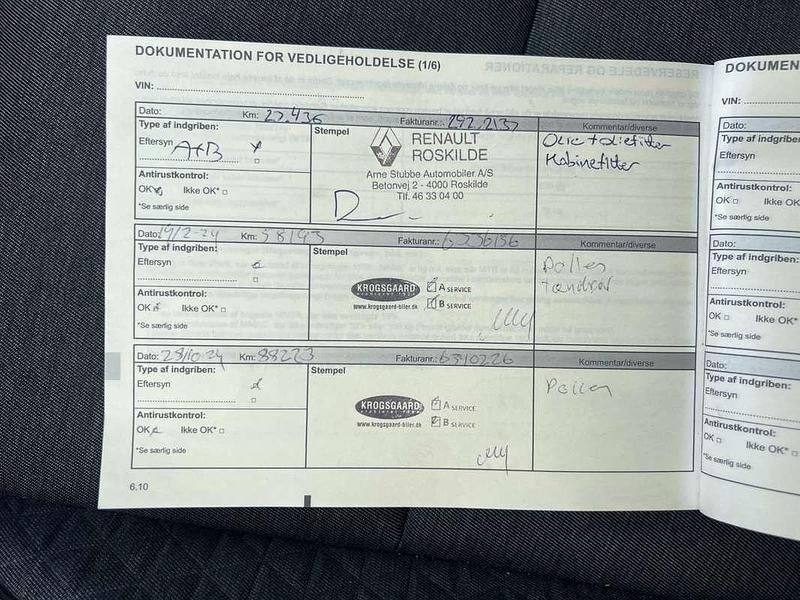 DOKUMENTATION FOR VEDLIGEHOLDELSE (1/6)
VIN:
Dato: Km: 22.436 Fakturanr.: 292.2137 Kommentar/diverse
Type af indgriben:
Eftersyn A+B
Antirustkontrol:
OK Ikke OK*
*Se særlig side
Stempel
RENAULT
ROSKILDE
Arne Stubbe Automobiler A/S
Betonvej 2 - 4000 Roskilde
Tlf. 46 33 04 00
Olie + oliefilter
Kabinefilter
Dato: 19/2-24 Km: 58193 Fakturanr.: Kommentar/diverse
Type af indgriben:
Eftersyn
Antirustkontrol:
OK Ikke OK*
*Se særlig side
Stempel
KROGSGAARD
A SERVICE
B SERVICE
www.krogsgaard-biler.dk
Pollen
tændrør
Dato: 28/10-24 Km: 88223 Fakturanr.: 6310226 Kommentar/diverse
Type af indgriben:
Eftersyn
Antirustkontrol:
OK Ikke OK*
*Se særlig side
Stempel
KROGSGAARD
A SERVICE
B SERVICE
www.krogsgaard-biler.dk
Pollen
6.10
DOKUMEN
VIN:
Dato:
Type af indgriben:
Eftersyn
Antirustkontrol:
OK Ikke OK*
*Se særlig side
Dato:
Type af indgriben:
Eftersyn
Antirustkontrol:
OK Ikke OK*
*Se særlig side
Dato:
Type af indgriben:
Eftersyn
Antirustkontrol:
OK Ikke OK*
*Se særlig side